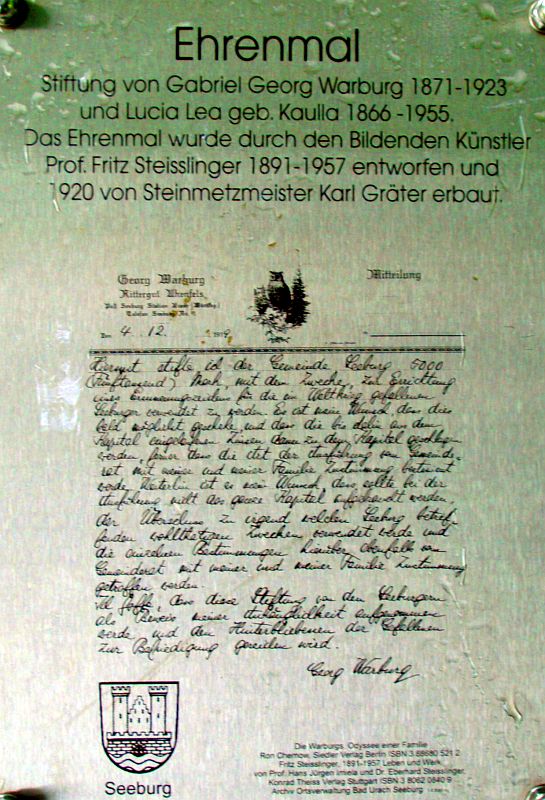 Ehrenmal
Stiftung von Gabriel Georg Warburg 1871-1923
und Lucia Lea geb. Kaulla 1866 -1955.
Das Ehrenmal wurde durch den Bildenden Künstler
Prof. Fritz Steisslinger 1891-1957 entworfen und
1920 von Steinmetzmeister Karl Gräter erbaut.
Georg Warburg
Rittergut Uhenfels
Mitteilung
Post Seeburg Station Urach (Württbg.)
Telefon Seeburg No.
Den 4. 12. 1919
Hiermit stifte ich der Gemeinde Seeburg 5000
(Fünftausend) Mark, mit dem Zwecke, zur Errichtung
eines Erinnerungszeichens für die im Weltkrieg gefallenen
Seeburger verwendet zu werden. Es ist mein Wunsch, dass dies
bald möglichst geschehe, und dass die bis dahin aus dem
Kapital eingelaufenen Zinsen dann zu dem Kapital geschlagen
werden, ferner dass die Art der Ausführung vom Gemeinde-
rat mit meiner und meiner Familie Zustimmung bestimmt
werde. Weiterhin ist es mein Wunsch, dass, sollte bei der
Ausführung nicht das ganze Kapital aufgebraucht werden,
der Überschuss zu irgend welchen Seeburg betref-
fenden wohlthätigen Zwecken verwendet werde und
die einzelnen Bestimmungen hierüber ebenfalls vom
Gemeinderat mit meiner und meiner Familie Zustimmung
getroffen werden.
Ich hoffe, dass diese Stiftung von den Seeburgern
als Beweis meiner Anhänglichkeit aufgenommen
werde und den Hinterbliebenen der Gefallenen
zur Befriedigung gereichen wird.
Georg Warburg
Seeburg
Die Warburgs, Odyssee einer Familie
Ron Chernow, Siedler Verlag Berlin ISBN 3 88680 521 2
Fritz Steisslinger, 1891-1957 Leben und Werk
von Prof. Hans Jürgen Imiela und Dr. Eberhard Steisslinger,
Konrad Theiss Verlag Stuttgart ISBN 3 8062 0840 9
Archiv Ortsverwaltung Bad Urach Seeburg